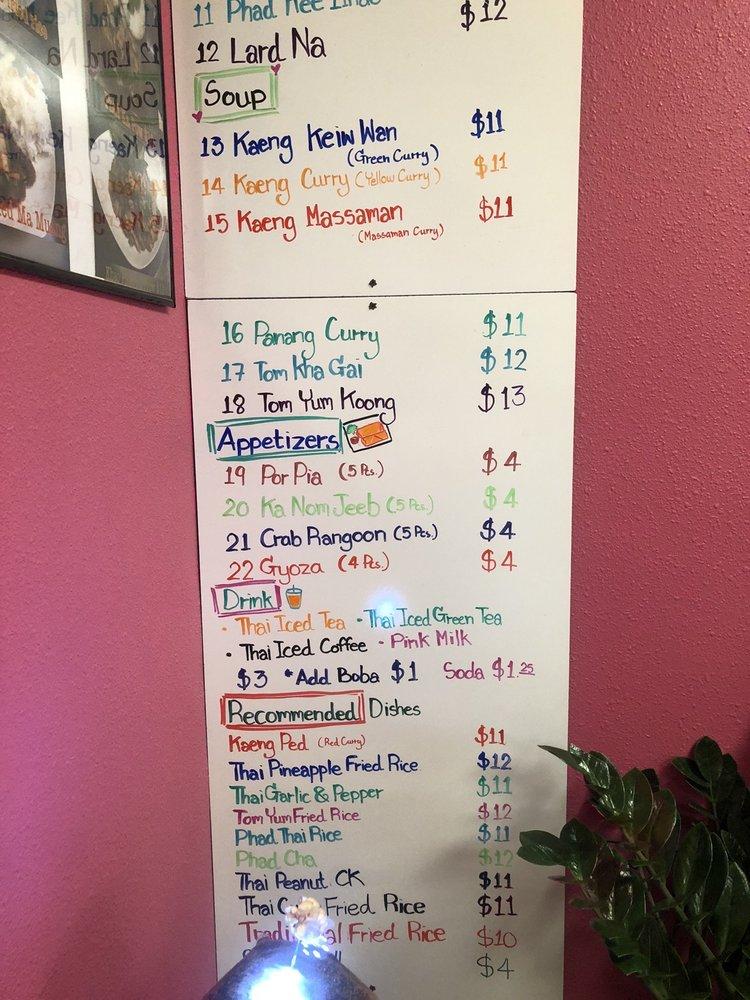 11 Phad Kee Mao $12
12 Lard Na
Soup
13 Kaeng Keiw Wan $11
(Green Curry)
14 Kaeng Curry (Yellow Curry) $11
15 Kaeng Massaman $11
(Massaman Curry)
16 Panang Curry $11
17 Tom Kha Gai $12
18 Tom Yum Koong $13
Appetizers
19 Por Pia (5 Pcs.) $4
20 Ka Nom Jeeb (5 Pcs.) $4
21 Crab Rangoon (5 Pcs.) $4
22 Gyoza (4 Pcs.) $4
Drink
· Thai Iced Tea · Thai Iced Green Tea
· Thai Iced Coffee · Pink Milk
$3 *Add Boba $1 Soda $1.25
Recommended Dishes
Kaeng Ped (Red Curry) $11
Thai Pineapple Fried Rice $12
Thai Garlic & Pepper $11
Tom Yum Fried Rice $12
Phad Thai Rice $11
Phad Cha $12
Thai Peanut CK $11
Thai Fried Rice $11
Fried Rice $10
$4